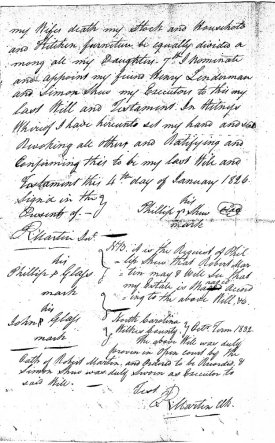 my Wifes death my Stock and Household
and Kitchen furniture be equally divided a
mong all my Daughters. 7th I nominate
and appoint my friend Henry Linderman
and Simon Shew my Executors to this my
last Will and Testament. In Witness
Whereof I have hereunto set my hand and Seal
Revoking all others and Ratifying and
Confirming this to be my last Will and
Testament this 4th day of January 1826
Signd in the
Presents of
his
Phillip Shew Seal
mark
R Martin Jut.
his
Phillip Glass
mark
his
John Glass
mark
NB. it is the Request of Phil
lip Shew that Robert Mar
tin may & Will See that
my Estate is Shared accord
ing to the above Will. &c.
North Carolina
Wilkes County Octr Term 1832
the above Will was duly
proven in Open Court by the
Oath of Robert Martin, and Ordered to be Recorded, &
Simon Shew was duly Sworn as Executor to
said Will.
Test
R Martin Clk.